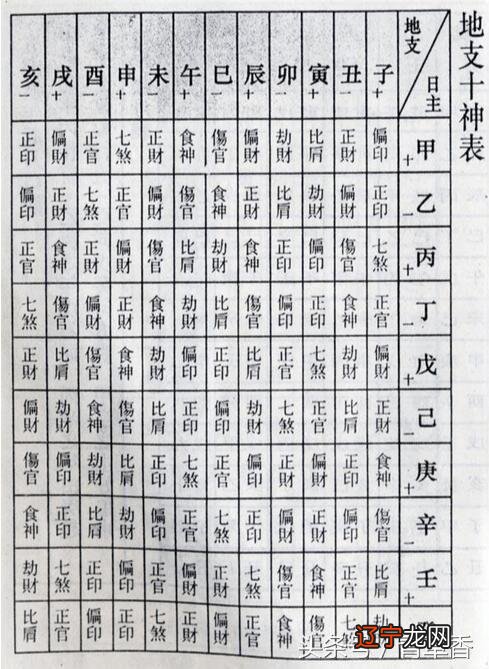 地支十神表
地支 日主
亥一 戌十 酉一 申十 未一 午十 巳一 辰十 卯一 寅十 丑一 子十
正印 偏財 正官 七煞 正財 食神 傷官 偏財 劫財 比肩 正財 偏印 甲十
偏印 正財 七煞 正官 偏財 傷官 食神 正財 比肩 劫財 偏財 正印 乙一
正官 食神 正財 偏財 傷官 比肩 劫財 食神 正印 偏印 傷官 七煞 丙十
七煞 傷官 偏財 正財 食神 劫財 比肩 傷官 偏印 正印 食神 正官 丁一
正財 比肩 傷官 食神 劫財 偏印 正印 比肩 正官 七煞 劫財 偏財 戊十
偏財 劫財 食神 傷官 比肩 正印 偏印 劫財 七煞 正官 比肩 正財 己一
傷官 偏印 劫財 比肩 正印 七煞 正官 偏印 正財 偏財 正印 食神 庚十
食神 正印 比肩 劫財 偏印 正官 七煞 正印 偏財 正財 偏印 傷官 辛一
劫財 七煞 正印 偏印 正官 偏財 正財 七煞 傷官 食神 正官 比肩 壬十
比肩 正官 偏印 正印 七煞 正財 偏財 正官 食神 傷官
辽宁龙网